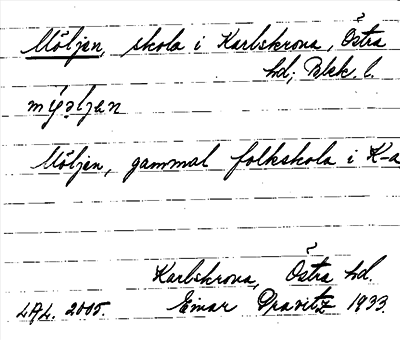 Möljen, skola i Karlskrona, Östra
hd; Blek. l.
Möljen, gammal folkskola i K-a
Karlskrona, Östra hd.
LAL. 2005. Einar Dravitz 1933.